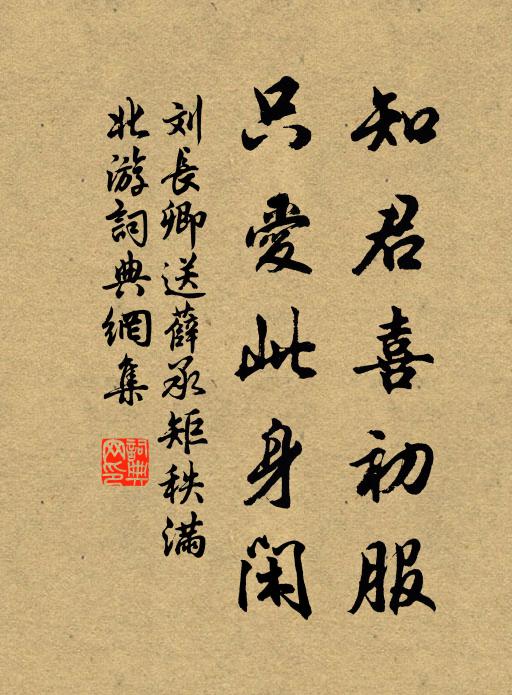 知君喜初服
只愛此身閑
刘長卿送薛承矩秩满
北游詞典網集
詞典網印